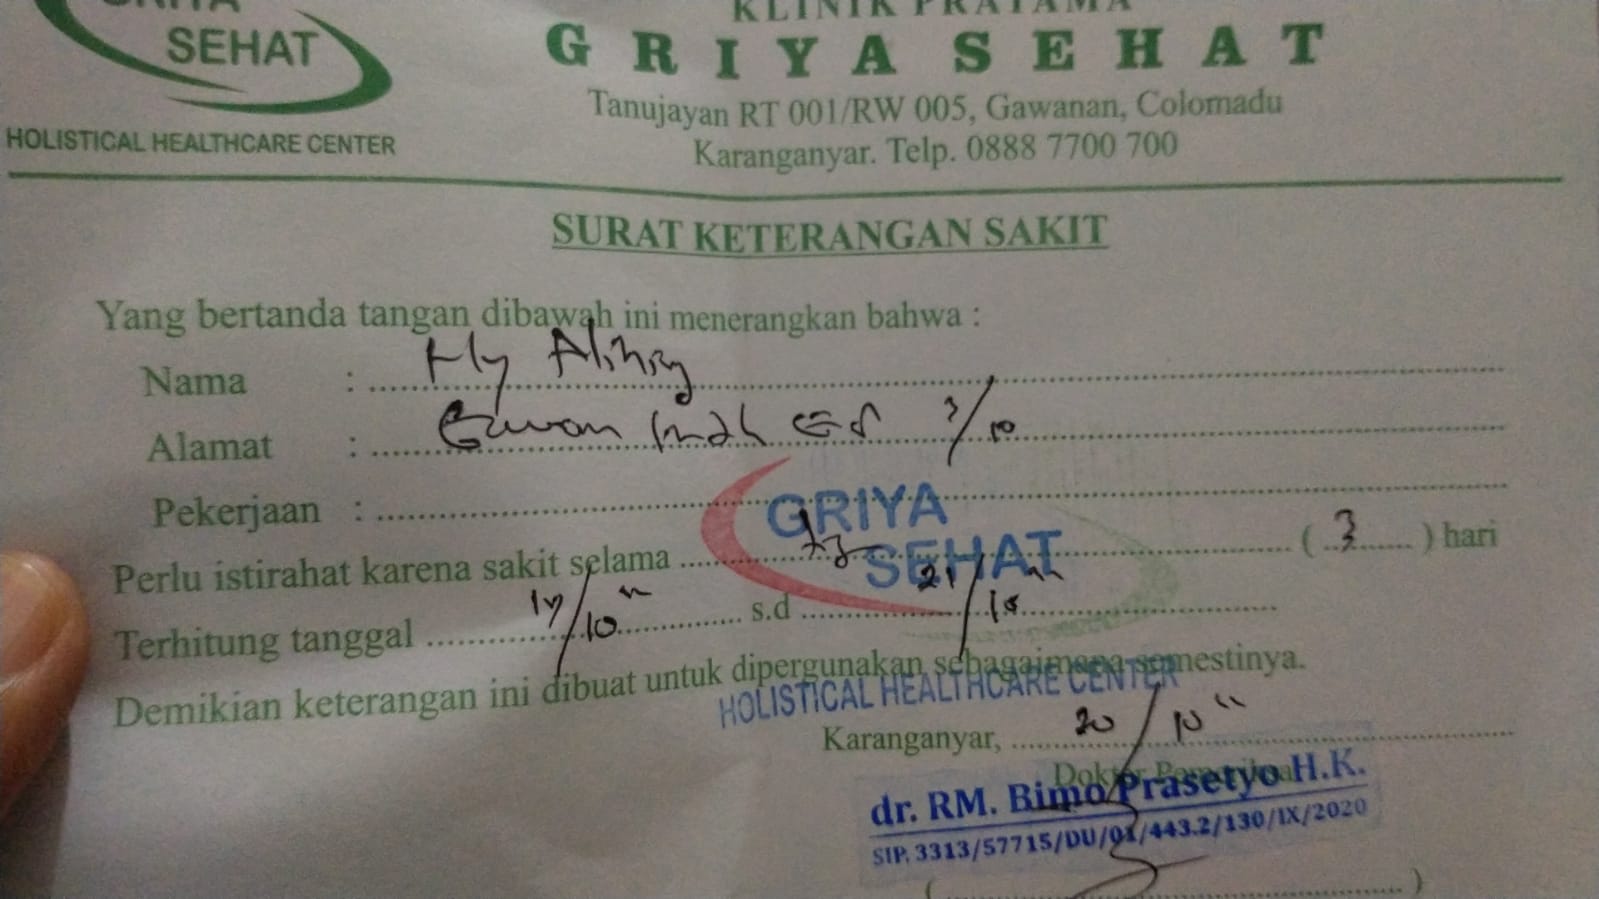 SEHAT
HOLISTICAL HEALTHCARE CENTER
KLINIK PRATAMA
GRIYA SEHAT
Tanujayan RT 001/RW 005, Gawanan, Colomadu
Karanganyar. Telp. 0888 7700 700
SURAT KETERANGAN SAKIT
Yang bertanda tangan dibawah ini menerangkan bahwa :
Nama :
Alamat : Indah 3/10
Pekerjaan :
GRIYA SEHAT
Perlu istirahat karena sakit selama ( 3 ) hari
Terhitung tanggal /10 s.d 21/10
Demikian keterangan ini dibuat untuk dipergunakan sebagaimana semestinya.
HOLISTICAL HEALTHCARE CENTER
Karanganyar, 20/10
Dokter
dr. RM. Bimo Prasetyo H.K.
SIP. 3313/57715/DU/01/443.2/130/IX/2020
( )